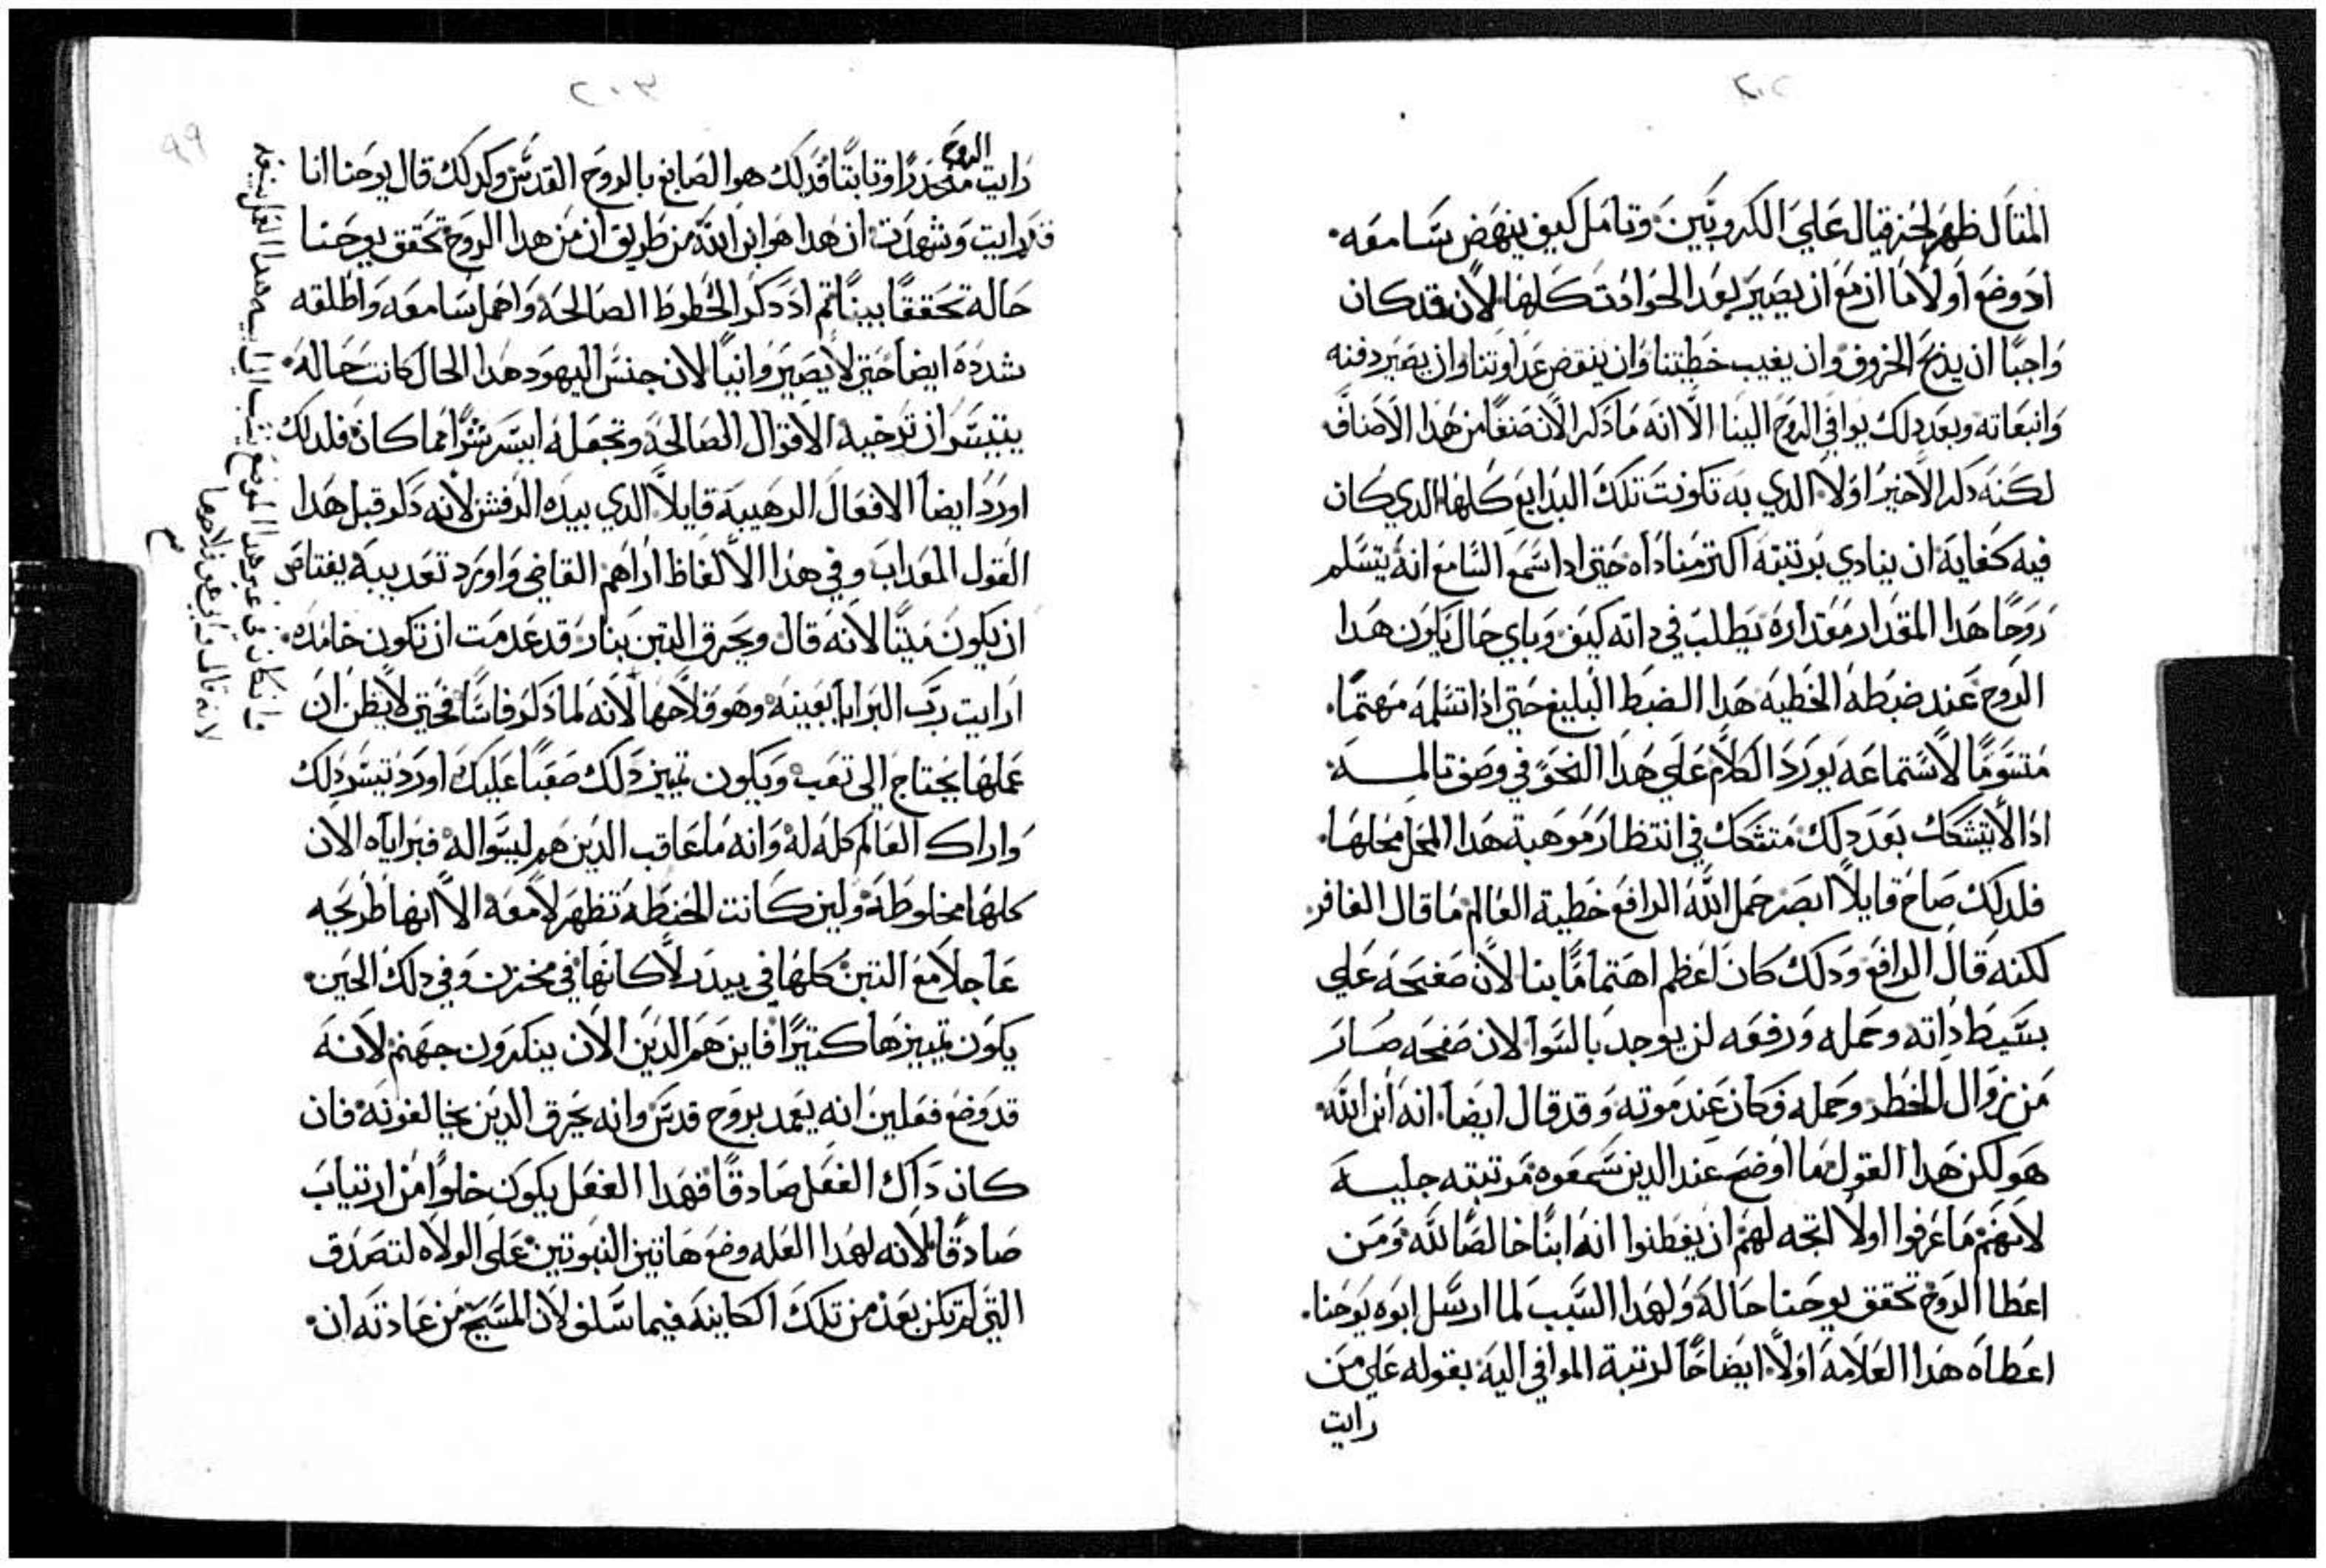 ٢٠٢
المتال ظهر لحزقيال علي الكروبين وتامل كيف ينهض بسامعه
اد وضع اولا ما ازمع ان يصير بعد الحوادت كلها لان قد كان
واجبا ان يذبح الخروف وان يغيب خطيتنا وان ينتقض عداوتنا وان يصير دفنه
وانبعاته وبعد دلك يوافي الروح الينا الا انه ما دكر الان صنفا من هدا الاصناف
لكنه دكر الاخير اولا الدي به تكونت تلك البدايع كلها الدي كان
فيه كفاية ان ينادي برتبته اكتر مناداه حتي ادا سمع السامع انه يتسلم
روحا هدا المقدار مقداره يطلب في داته كيف وباي حال يكون هدا
الروح عند ضبطه الخطيه هدا الضبط البليغ حتي ادا تسلمه مهتما
متسوما لاستماعه يورد الكلام علي هدا النحو في وصف تالمـه
ادا لا يتشكك بعد دلك متشكك في انتظار موهبة هدا المحل محلها
فلدلك صاح قايلا ابصر حمل الله الرافع خطية العالم ما قال الغافر
لكنه قال الرافع ودلك كان اعظم اهتماما بنا لان صفحه علي
بسيط داته وحمله ورفعه لن يوجد بالسوا لان صفحه صار
من زوال الخطر وحمله فكان عند موته وقد قال ايضا انه ابن الله
هو لكن هدا القول ما اوضح عند الدين سمعوه مرتبته جليسه
لانهم ما عرفوا اولا اتجه لهم ان يفطنوا انه ابنا خالصا لله ومن
اعطا الروح تحقق يوحنا حاله ولهدا السبب لما ارسل ابوه يوحنا
اعطاه هدا العلامه اولا ايضاحا لرتبة الموافي اليه بقوله علي من
رايت
٢٠٣
٩٩
رايت الروح منحدرا وتابتا فدلك هو الصابغ بالروح القدس وكدلك قال يوحنا انا
قد رايت وشهدت ان هدا هو ابن الله من طريق ان من هدا الروح تحقق يوحنا
حاله تحققا بينا تم اد دكر الخطوط الصالحه واهمل سامعه واطلقه
شدده ايضا حتي لا يصير وانيا لان جنس اليهود هدا الحال كانت حاله
يتيسر ان ترخيه الاقوال الصالحه وتجعله ايسر شرا مما كان فلدلك
اورد ايضا الافعال الرهيبة قايلا الدي بيده الرفش لانه دكر قبل هدا
القول العداب وفي هدا الالفاظ اراهم القاضي واورد تعديبه يفتاص
ان يكون ميتا لانه قال ويحرق التبن بنار قد عدمت ان تكون خامده
ارايت رب البرايا بعينه وهو فلاحها لانه لما دكر فاسا فحتي لا يظن ان
عملها يحتاج الي تعب ويكون تمييز دلك صعبا عليك اورد تيسر دلك
واراك العالم كله له وانه ما عاقب الدين هم ليسوا له فبراياه الان
كلها مخلوطه ولين كانت الحنطه تظهر لامعه الا انها طريحه
عاجلا مع التبن كلها في بيدر لا كانها في مخزن وفي دلك الحين
يكون تمييزها كتيرا فاين هم الدين الان ينكرون جهنم لانه
قد وضع فعلين انه يعمد بروح قدس وانه يحرق الدين يخالفونه فان
كان داك الفعل صادقا فهدا الفعل يكون خلوا من ارتياب
صادقا لانه لهدا العله وضع هاتين النبوتين علي الولاه لتصدق
التي لم تكن بعد من تلك الكاينه فيما سلف لان المسيح من عادته ان
لانه قال